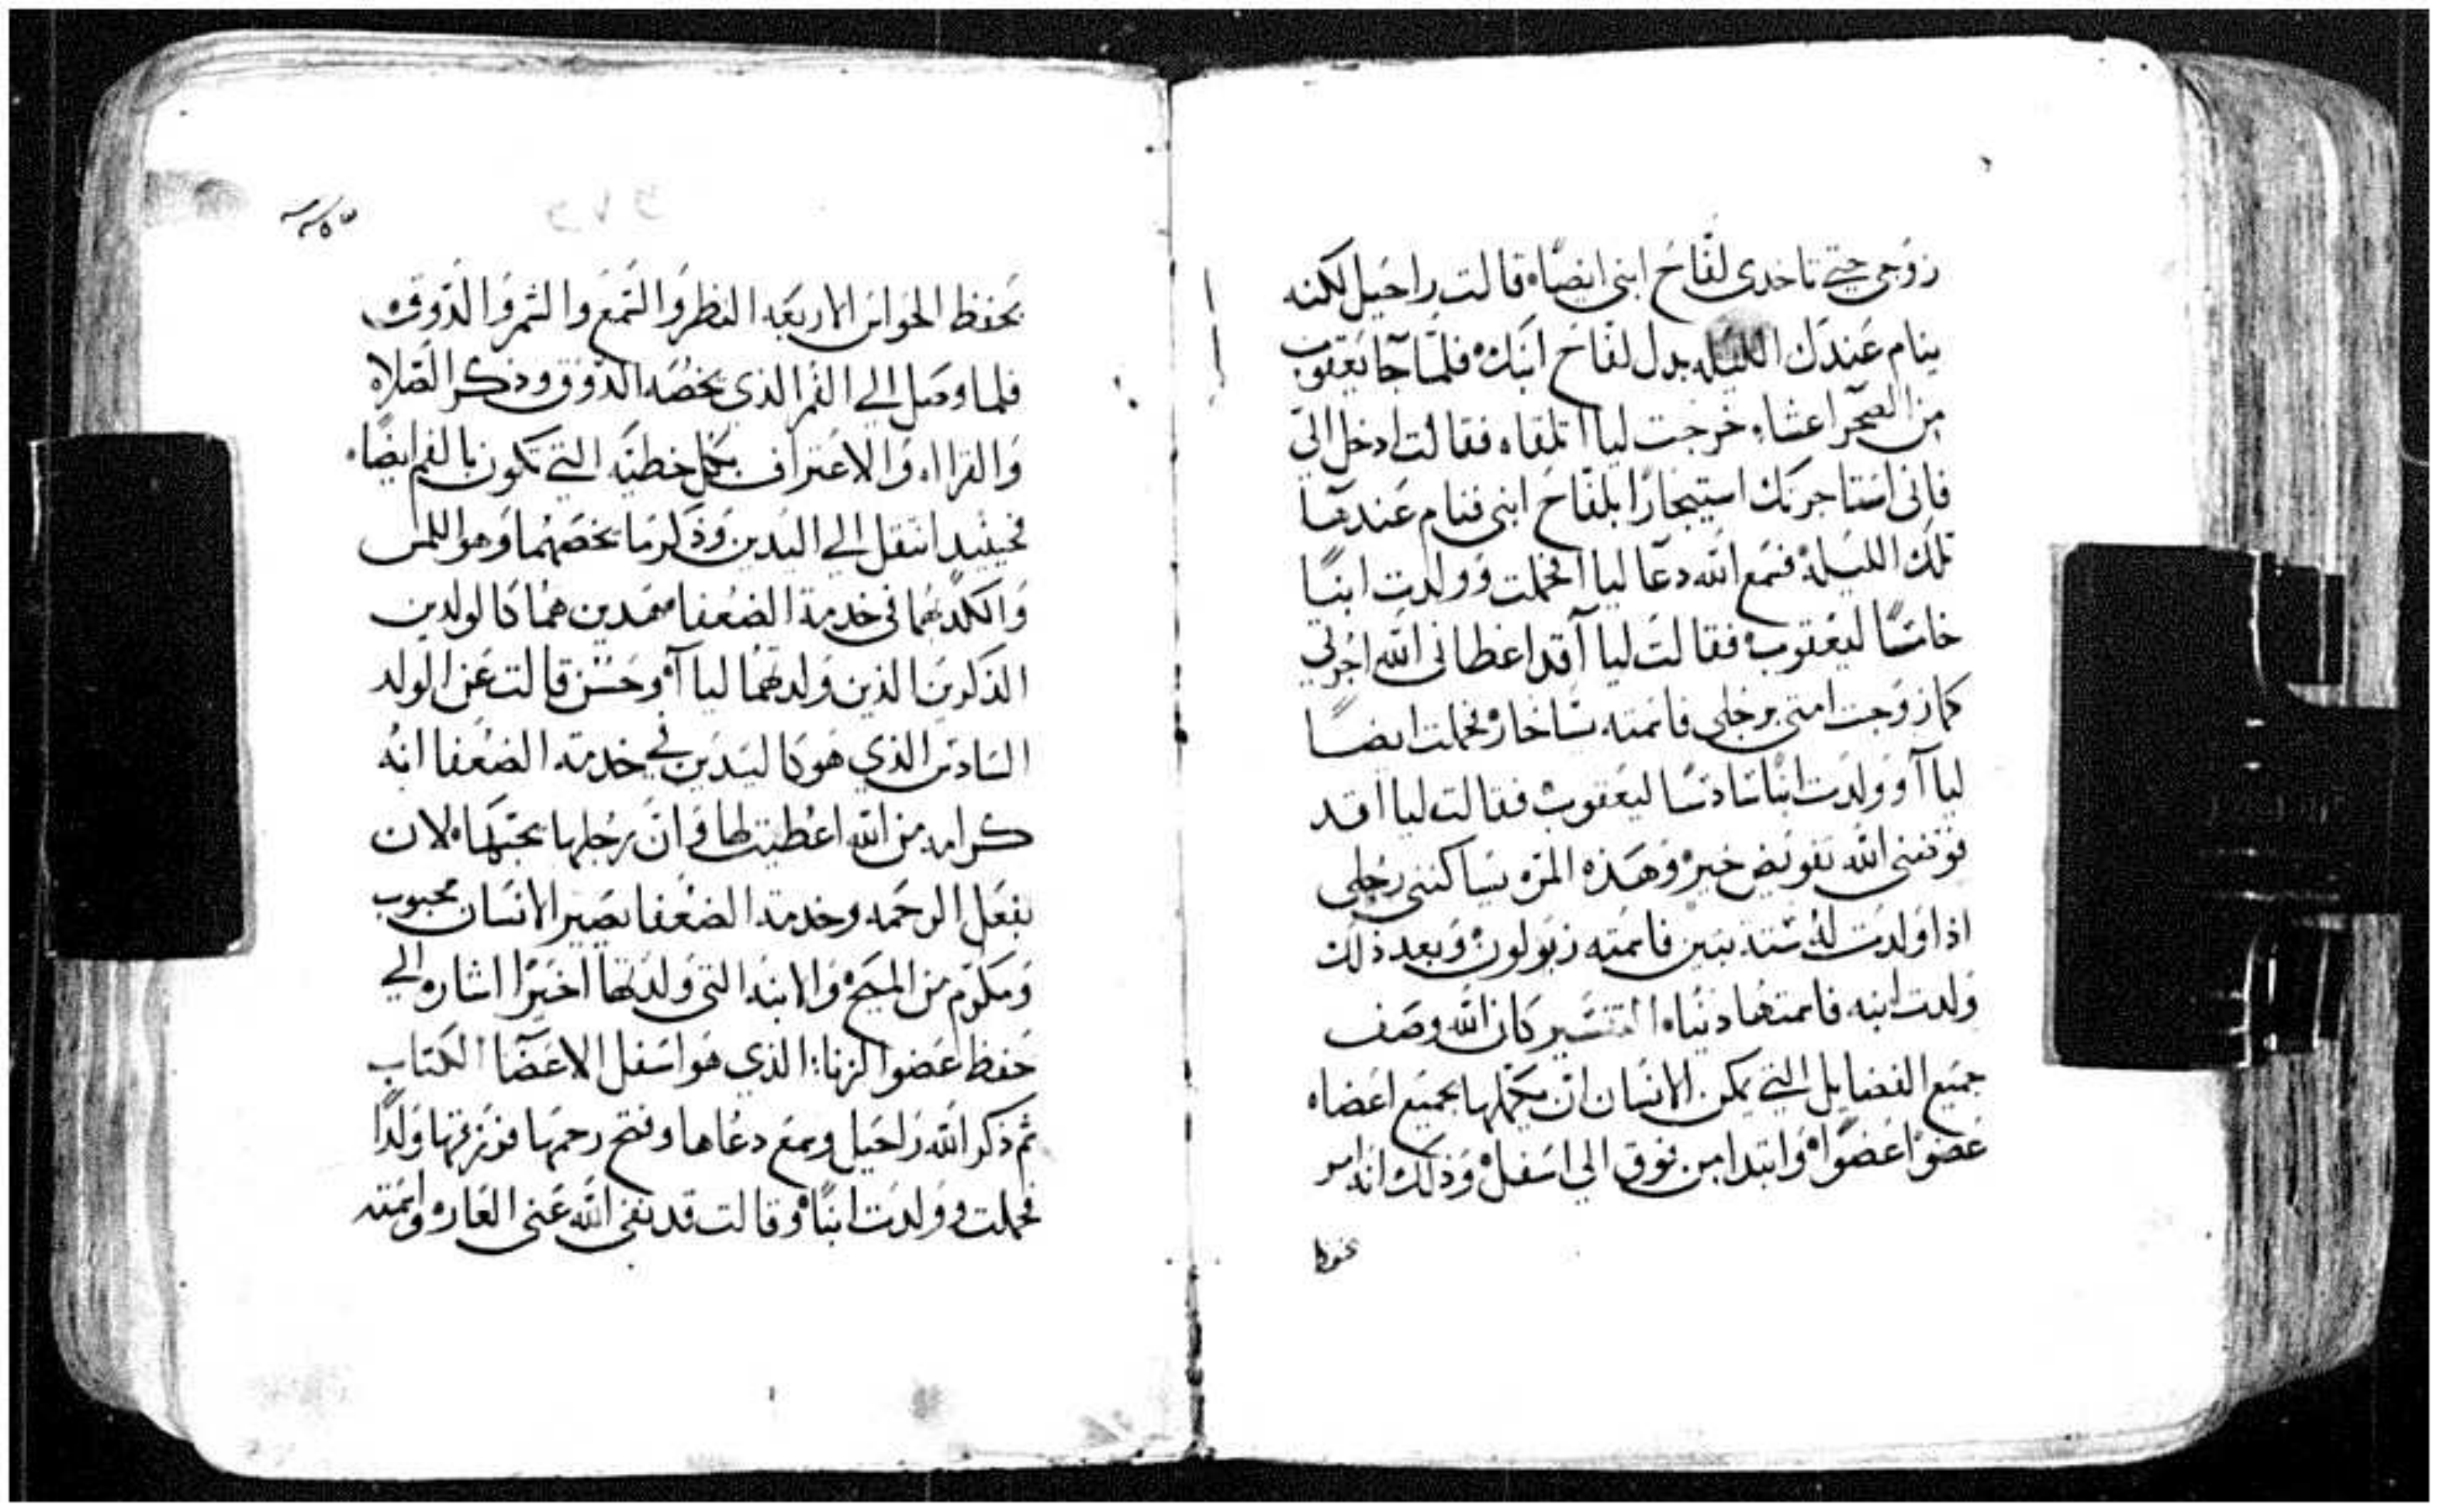 زوجي حتي تاخدي لفاح ابني ايضاه قالت راحيل لكنه
ينام عندك الليله بدل لفاح ابنك فلما جا يعقوب
من الصحرا عشاء خرجت ليا اتلقاه فقالت ادخل الي
فاني استاجرتك استيجارًا بلفاح ابني فنام عندها
تلك الليلة فسمع الله دعا ليا افحملت وولدت ابنًا
خامسًا ليعقوب فقالت ليا آقد اعطاني الله اجرتي
كما زوجت امتي برجلي فاسمته يساخار فحملت ايضًا
ليا آو ولدت ابنًا سادسًا ليعقوب فقالت ليا اقد
الله تفويض خير وهذه المره يساكنني رجلي
اذا ولدت له ستة بنين فاسمته زبولون وبعد ذلك
ولدت ابنه فاسمتها دنياه التفسير كان الله وصف
جميع الفضايل التي يمكن الانسان ان يكملها بجميع اعضاه
عضوًا عضوًاه وابتدا من فوق الي اسفل وذلك انه امر
بحفظ الحواس الاربعه النظر والسمع والشم والذوق
فلما وصل الي الفم الذي يخصه الذوق وذكر الصلاه
والقرااه والاعتراف بكل خطيه التي تكون بالفم ايضًا
فحينيد انتقل الي اليدين وذكر ما يخصهما وهو اللمس
والكد بهما في خدمة الضعفا فهدين هما كالولدين
الذكرين الذين ولدتهما ليا آه وحسن قالت عن الولد
السادس الذي هو كاليدين في خدمة الضعفا انه
كرامه من الله اعطيتها وان رجلها يحبها لان
بفعل الرحمه وخدمة الضعفا يصير الانسان محبوب
ومكرم من المسيح والابنه التي ولدتها اخيرًا اشاره الي
حفظ عضوا لزنا الذي هو اسفل الاعضا الكتاب
ثم ذكر الله راحيل وسمع دعاها وفتح رحمها فرزقها ولدًا
فحملت وولدت ابنًا وقالت قد نفي الله عني العار واسمته